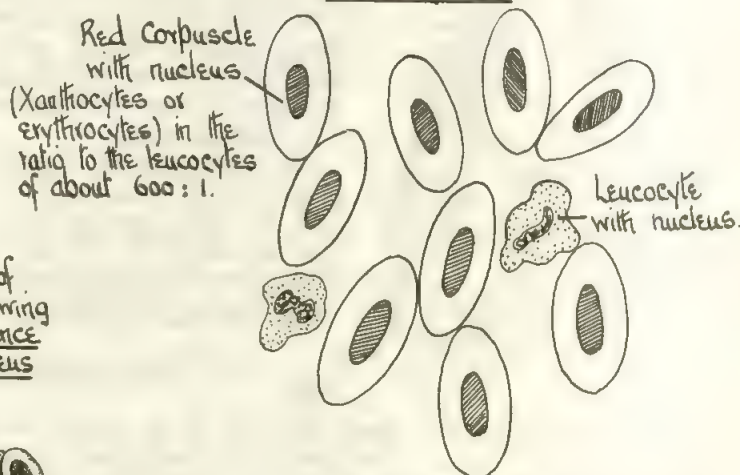 Red Corpuscle
with nucleus
(Xanthocytes or
erythrocytes) in the
ratio to the leucocytes
of about 600 : 1.
Leucocyte
with nucleus.
of